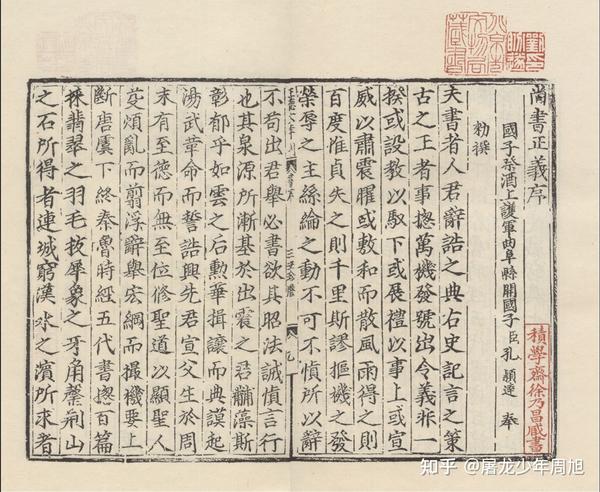 尚書正義序
國子祭酒上護軍曲阜縣開國子臣孔穎達 奉
勑撰
夫書者人君辭誥之典右史記言之策
古之王者事揔萬機發號出令義非一
揆或設教以馭下或展禮以事上或宣
威以肅震曜或敷和而散風雨得之則
百度惟貞失之則千里斯謬樞機之發
榮辱之主絲綸之動不可不慎所以辭
不苟出君舉必書欲其昭法誡慎言行
也其泉源所漸基於出震之君黼藻斯
彰郁乎如雲之后勳華揖讓而典謨起
湯武革命而誓誥興先君宣父生於周
末有至德而無至位修聖道以顯聖人
芟煩亂而翦浮辭舉宏綱而撮機要上
斷唐虞下終秦魯時經五代書揔百篇
採翡翠之羽毛拔犀象之牙角罄荊山
之石所得者連城窮漢水之濱所求者
積學齋徐乃昌藏書
知乎 @屠龙少年周旭